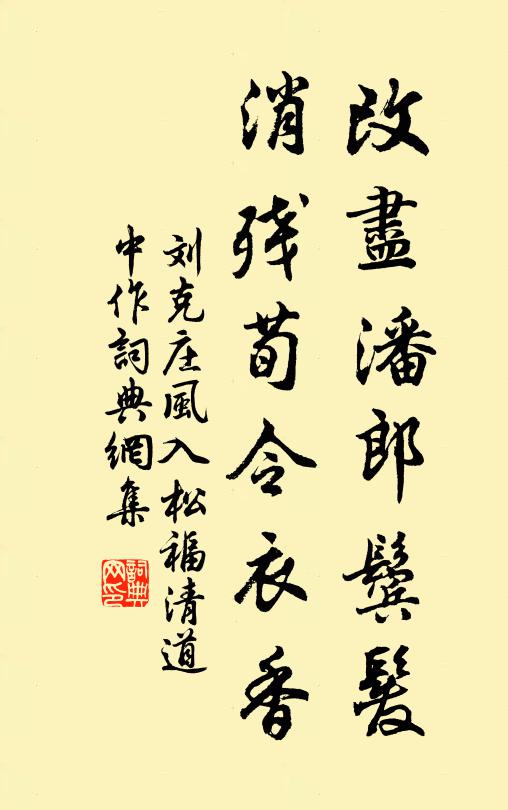 改盡潘郎鬢髮
消殘荀令衣香
刘克庄風入松福清道
中作詞典網集
詞典
网印